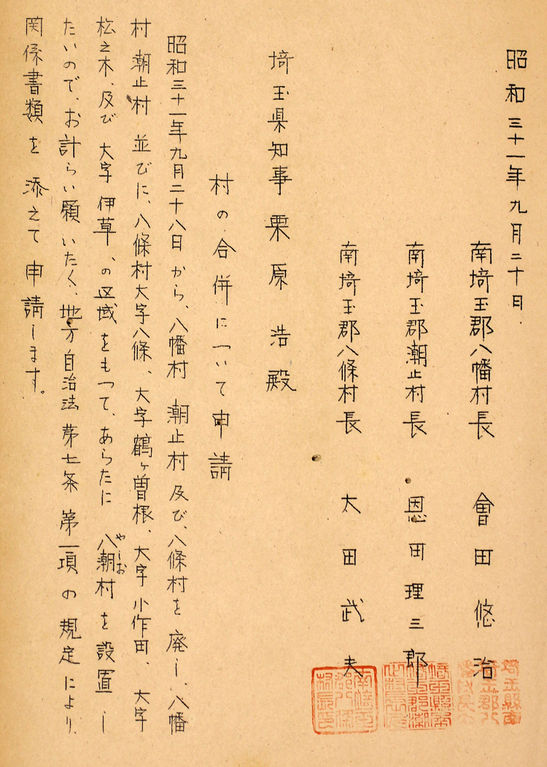 昭和三十一年九月二十日
南埼玉郡八幡村長 會田悠治
南埼玉郡潮止村長 恩田理三郎
南埼玉郡八條村長 太田武夫
埼玉県知事栗原浩殿
村の合併について申請
昭和三十一年九月二十八日から、八幡村 潮止村 及び、八條村を廃し、八幡
村 潮止村 並びに、八條村大字八條、大字鶴ヶ曽根、大字小作田、大字
松之木、及び大字伊草、の区域をもつて、あらたに 八潮村を設置し
やしお
たいので、お計らい願いたく、地方自治法第七条第一項の規定により、
関係書類を添えて申請します。